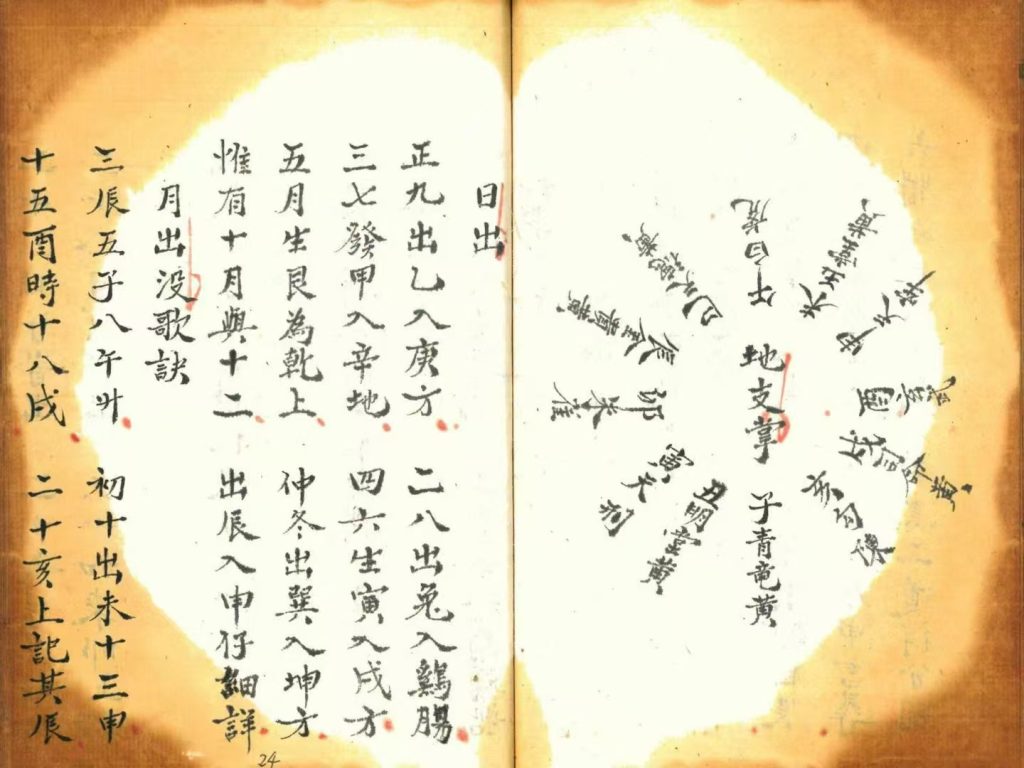 地支掌
子青竜黄
丑明堂黄
寅天刑
卯朱雀
辰金匱黄
巳天德黄
午白虎
未玉堂黄
申天牢
酉玄武
戌司命黄
亥勾陳
日出
正九出乙入庚方 二八出兔入鷄腸
三七發甲入辛地 四六生寅入戌方
五月生艮為乾上 仲冬出巽入坤方
惟有十月與十二 出辰入申仔細詳
月出没歌訣
三辰五子八午升 初十出未十三申
十五酉時十八戌 二十亥上記其辰
24